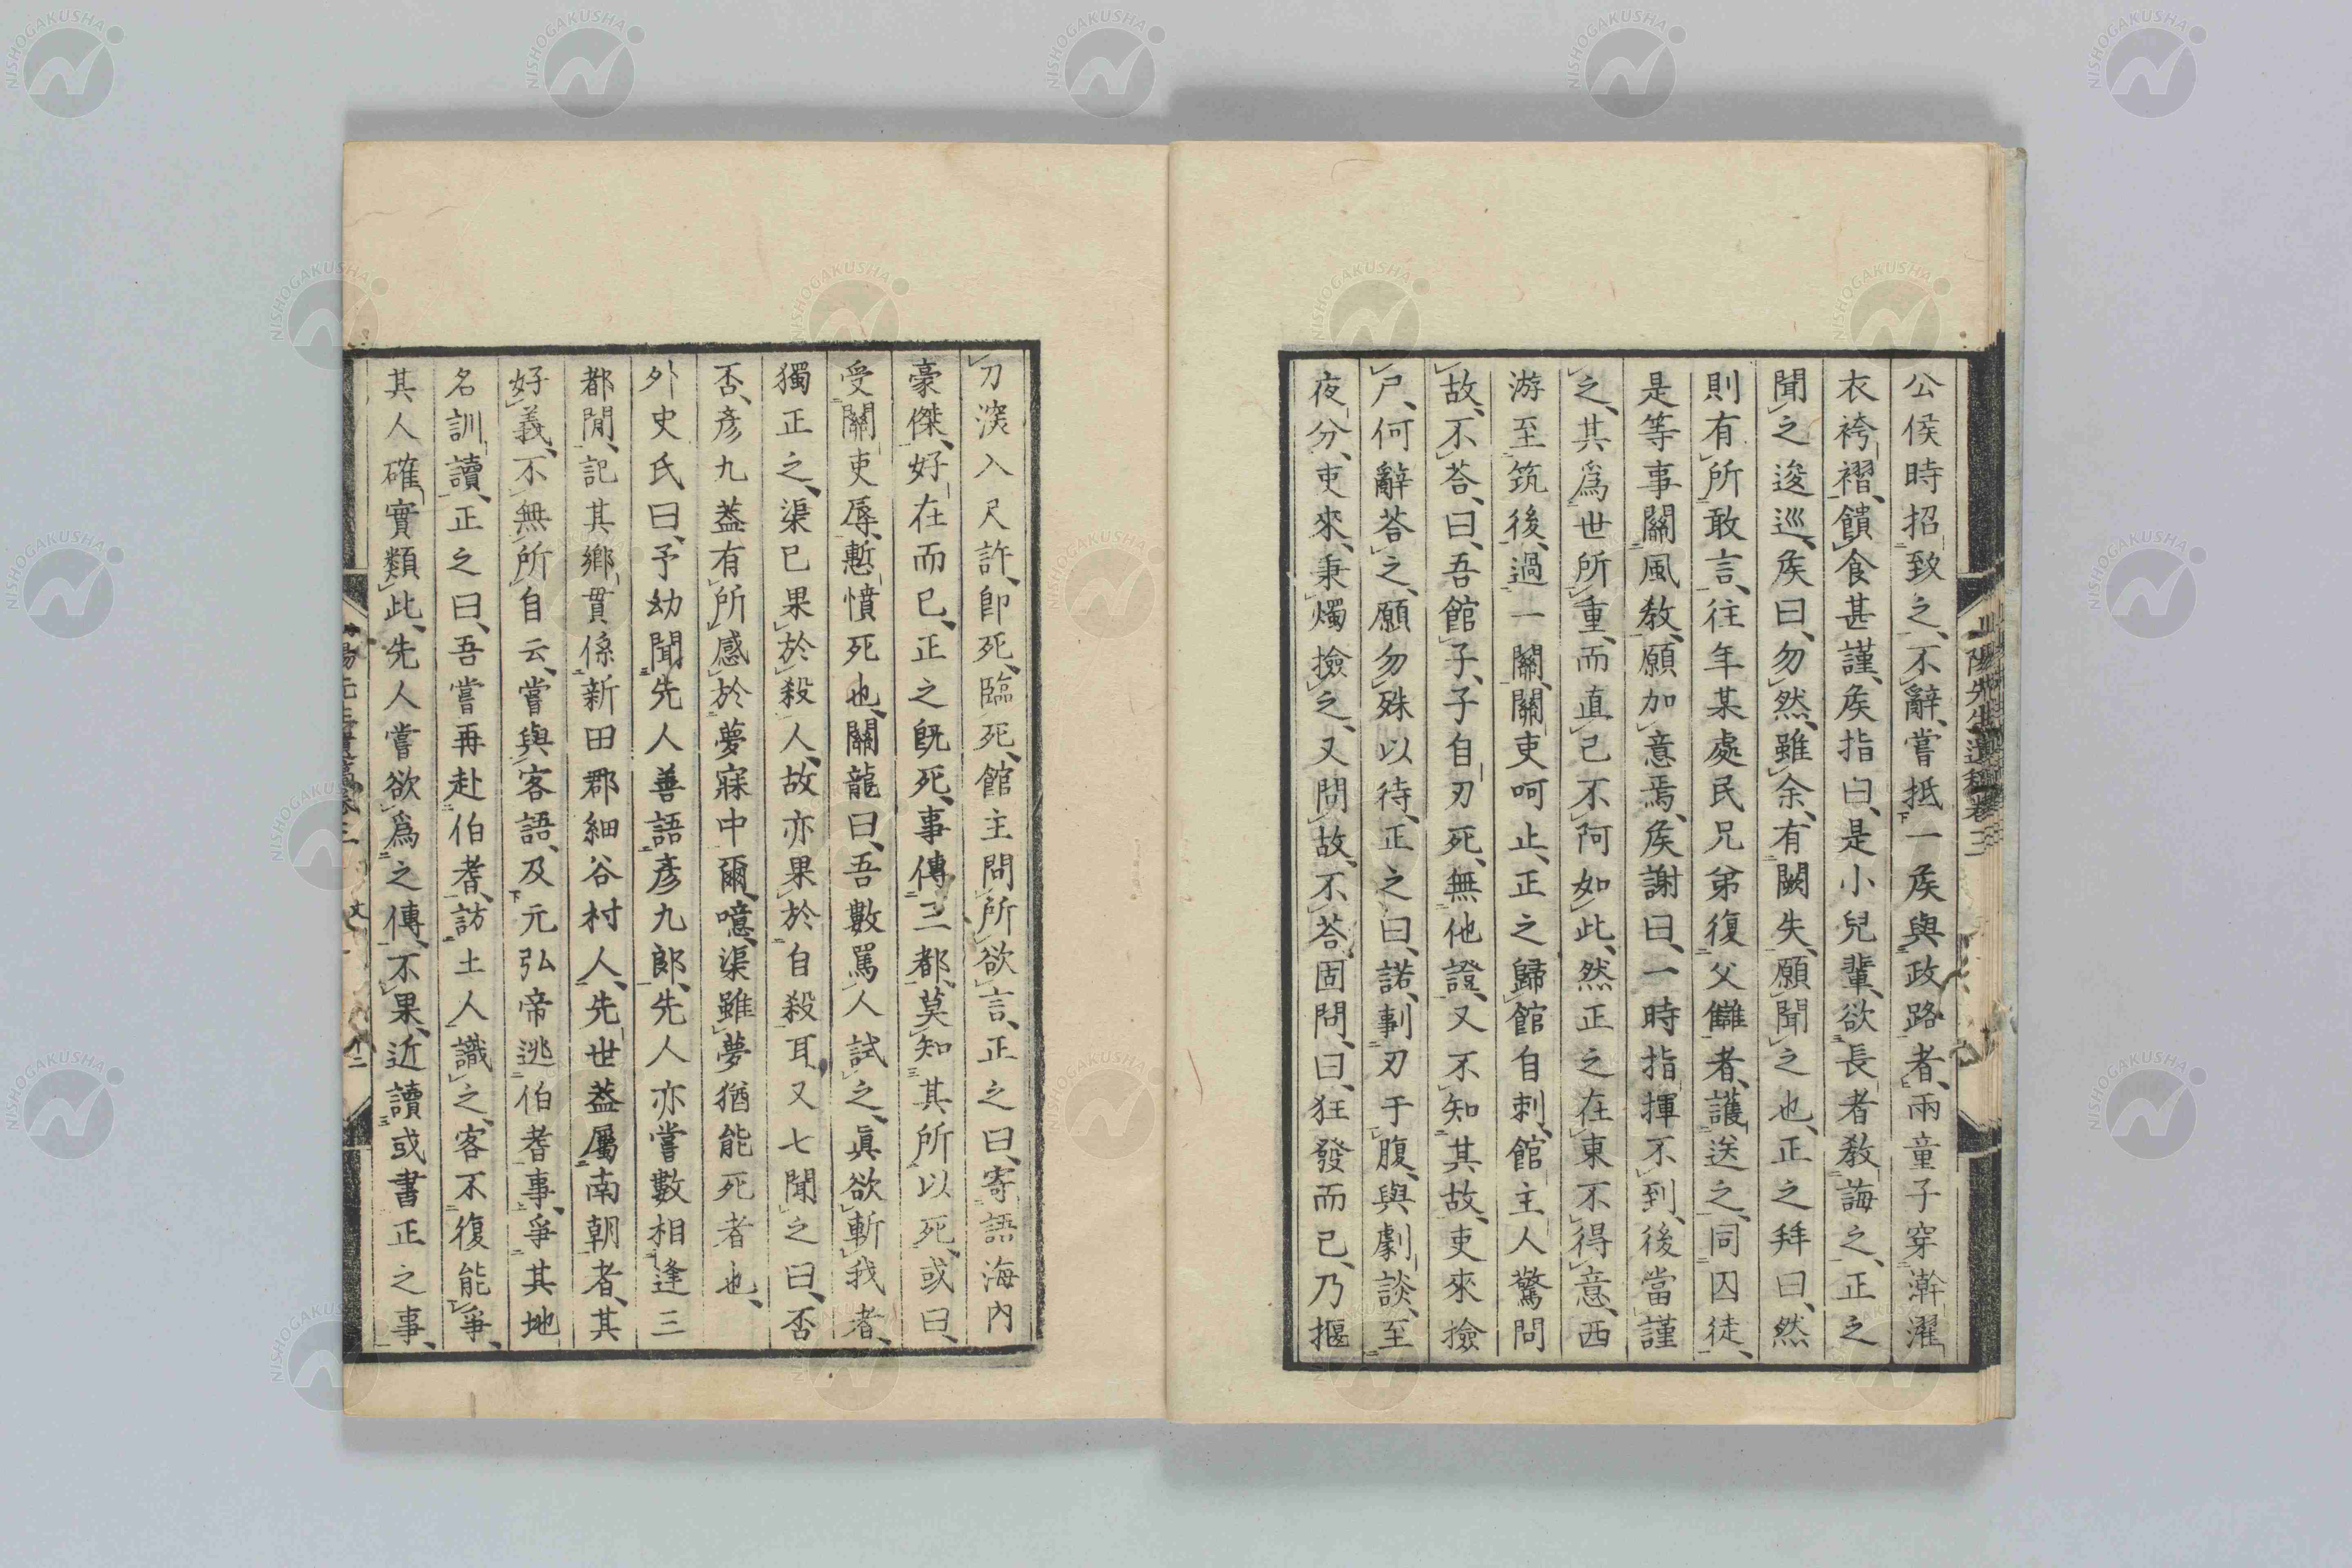 公侯時招致之、不辭、嘗抵一矦與政路者、兩童子穿澣濯
衣袴褶、饋食甚謹、矦指曰、是小兒輩、欲長者敎誨之、正之
聞之逡巡、矦曰、勿然、雖余、有闕失、願聞之也、正之拜曰、然
則有所敢言、往年某處民兄弟復父讎者、護送之、同囚徒、
是等事關風敎、願加意焉、矦謝曰、一時指揮不到、後當謹
之、其爲世所重、而直己不阿如此、然正之在東不得意、西
游至筑後、過一關、關吏呵止、正之歸館自刺、館主人驚問
故、不荅、曰、吾館子、子自刃死、無他證、又不知其故、吏來撿
尸、何辭荅之、願勿殊以待、正之曰、諾、剚刃于腹、與劇談、至
夜分、吏來、秉燭撿之、又問故、不荅、固問、曰、狂發而已、乃揠
刀深入尺許、卽死、臨死、館主問所欲言、正之曰、寄語海內
豪傑、好在而已、正之旣死、事傳三都、莫知其所以死、或曰、
受關吏辱、慙憤死也、關龍曰、吾數罵人試之、眞欲斬我者、
獨正之、渠已果於殺人、故亦果於自殺耳、又七聞之曰、否
否、彥九葢有所感於夢寐中爾、噫、渠雖夢猶能死者也、
外史氏曰、予幼聞先人善語彥九郎、先人亦嘗數相逢三
都閒、記其鄉貫係新田郡細谷村人、先世葢屬南朝者、其
好義、不無所自云、嘗與客語、及元弘帝逃伯耆事、爭其地
名訓讀、正之曰、吾嘗再赴伯耆、訪土人識之、客不復能爭、
其人確實類此、先人嘗欲爲之傳、不果、近讀或書正之事、
山陽先生遺稿卷三